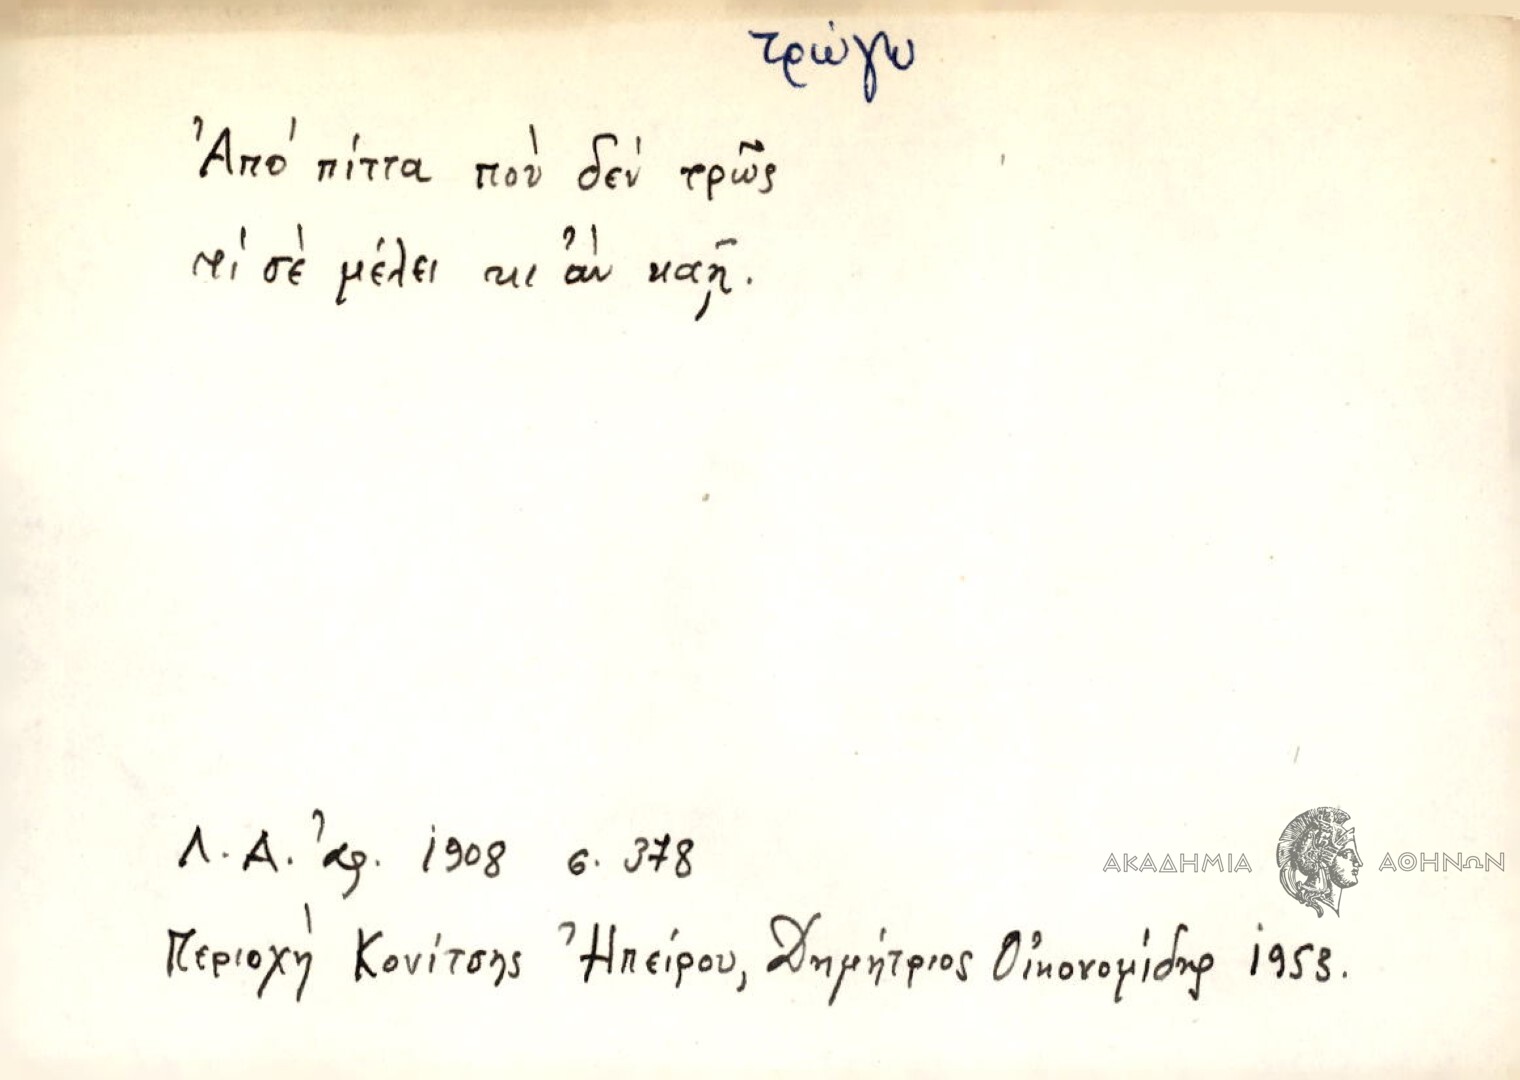 τρώγω
Ἀπὸ πίττα ποὺ δὲν τρῶς
τί σὲ μέλει κι ἂν καῇ.
Λ. Α. ἀρ. 1908 σ. 378
ΑΚΑΔΗΜΙΑ ΑΘΗΝΩΝ
Περιοχὴ Κονίτσης Ἠπείρου, Δημήτριος Οἰκονομίδης 1953.